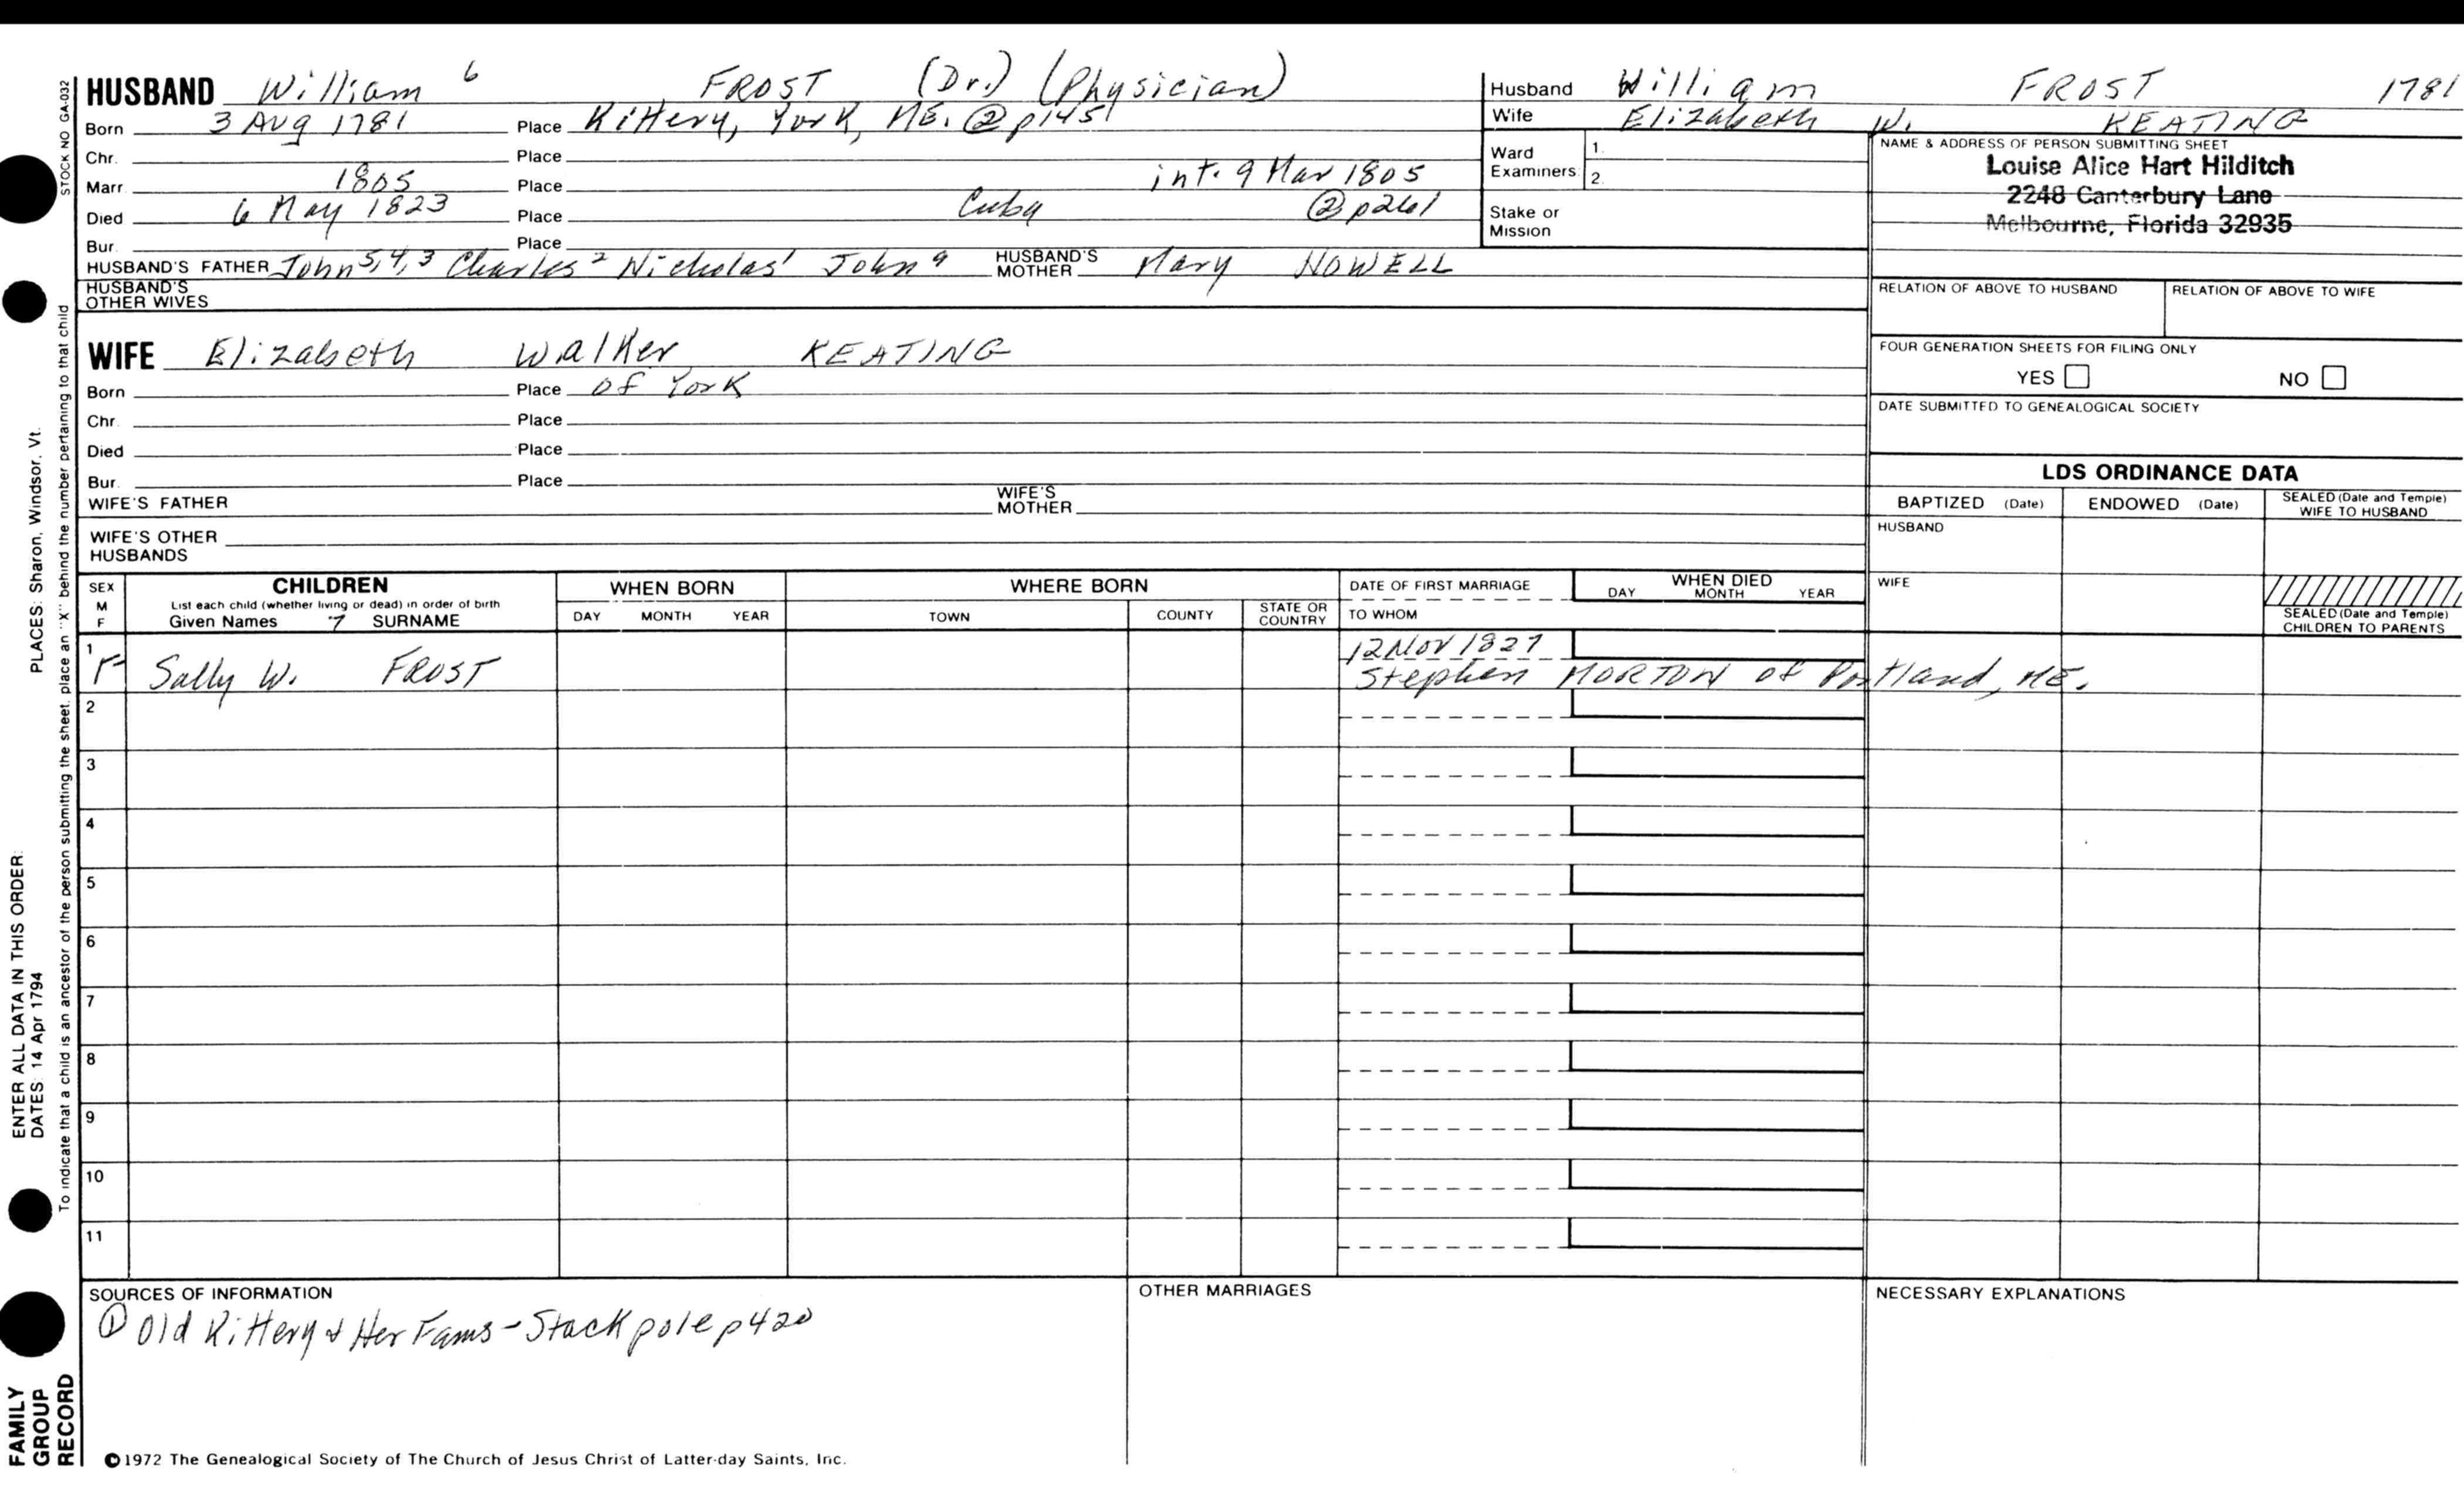 STOCK NO GA-032
HUSBAND William 6 FROST (Dr.) (Physician)
Born 3 Aug 1781 Place Kittery, York, ME. ② p145
Chr. Place
Marr. 1805 Place int. 9 Mar 1805
Died 6 May 1823 Place Cuba ② p261
Bur. Place
HUSBAND'S FATHER John 5,4,3 Charles 2 Nicholas 1 John a HUSBAND'S MOTHER Mary NOWELL
HUSBAND'S OTHER WIVES
WIFE Elizabeth Walker KEATING
Born Place of York
Chr. Place
Died Place
Bur. Place
WIFE'S FATHER WIFE'S MOTHER
WIFE'S OTHER HUSBANDS
Husband William FROST 1781
Wife Elizabeth W. KEATING
Ward Examiners 1. 2.
Stake or Mission
NAME & ADDRESS OF PERSON SUBMITTING SHEET
Louise Alice Hart Hilditch
2248 Canterbury Lane
Melbourne, Florida 32935
RELATION OF ABOVE TO HUSBAND RELATION OF ABOVE TO WIFE
FOUR GENERATION SHEETS FOR FILING ONLY
YES NO
DATE SUBMITTED TO GENEALOGICAL SOCIETY
LDS ORDINANCE DATA
BAPTIZED (Date) ENDOWED (Date) SEALED (Date and Temple) WIFE TO HUSBAND
HUSBAND
WIFE
SEALED (Date and Temple) CHILDREN TO PARENTS
SEX M F
CHILDREN
List each child (whether living or dead) in order of birth
Given Names 7 SURNAME
WHEN BORN
DAY MONTH YEAR
WHERE BORN
TOWN COUNTY STATE OR COUNTRY
DATE OF FIRST MARRIAGE
TO WHOM
WHEN DIED
DAY MONTH YEAR
1 F Sally W. FROST 12 Nov 1827
Stephen MORTON of Portland, ME.
2
3
4
5
6
7
8
9
10
11
SOURCES OF INFORMATION
① Old Kittery & Her Fams - Stackpole p420
OTHER MARRIAGES
NECESSARY EXPLANATIONS
©1972 The Genealogical Society of The Church of Jesus Christ of Latter-day Saints, Inc.
To indicate that a child is an ancestor of the person submitting the sheet, place an "X" behind the number pertaining to that child
ENTER ALL DATA IN THIS ORDER:
DATES 14 Apr 1794
PLACES: Sharon, Windsor, Vt.
FAMILY GROUP RECORD